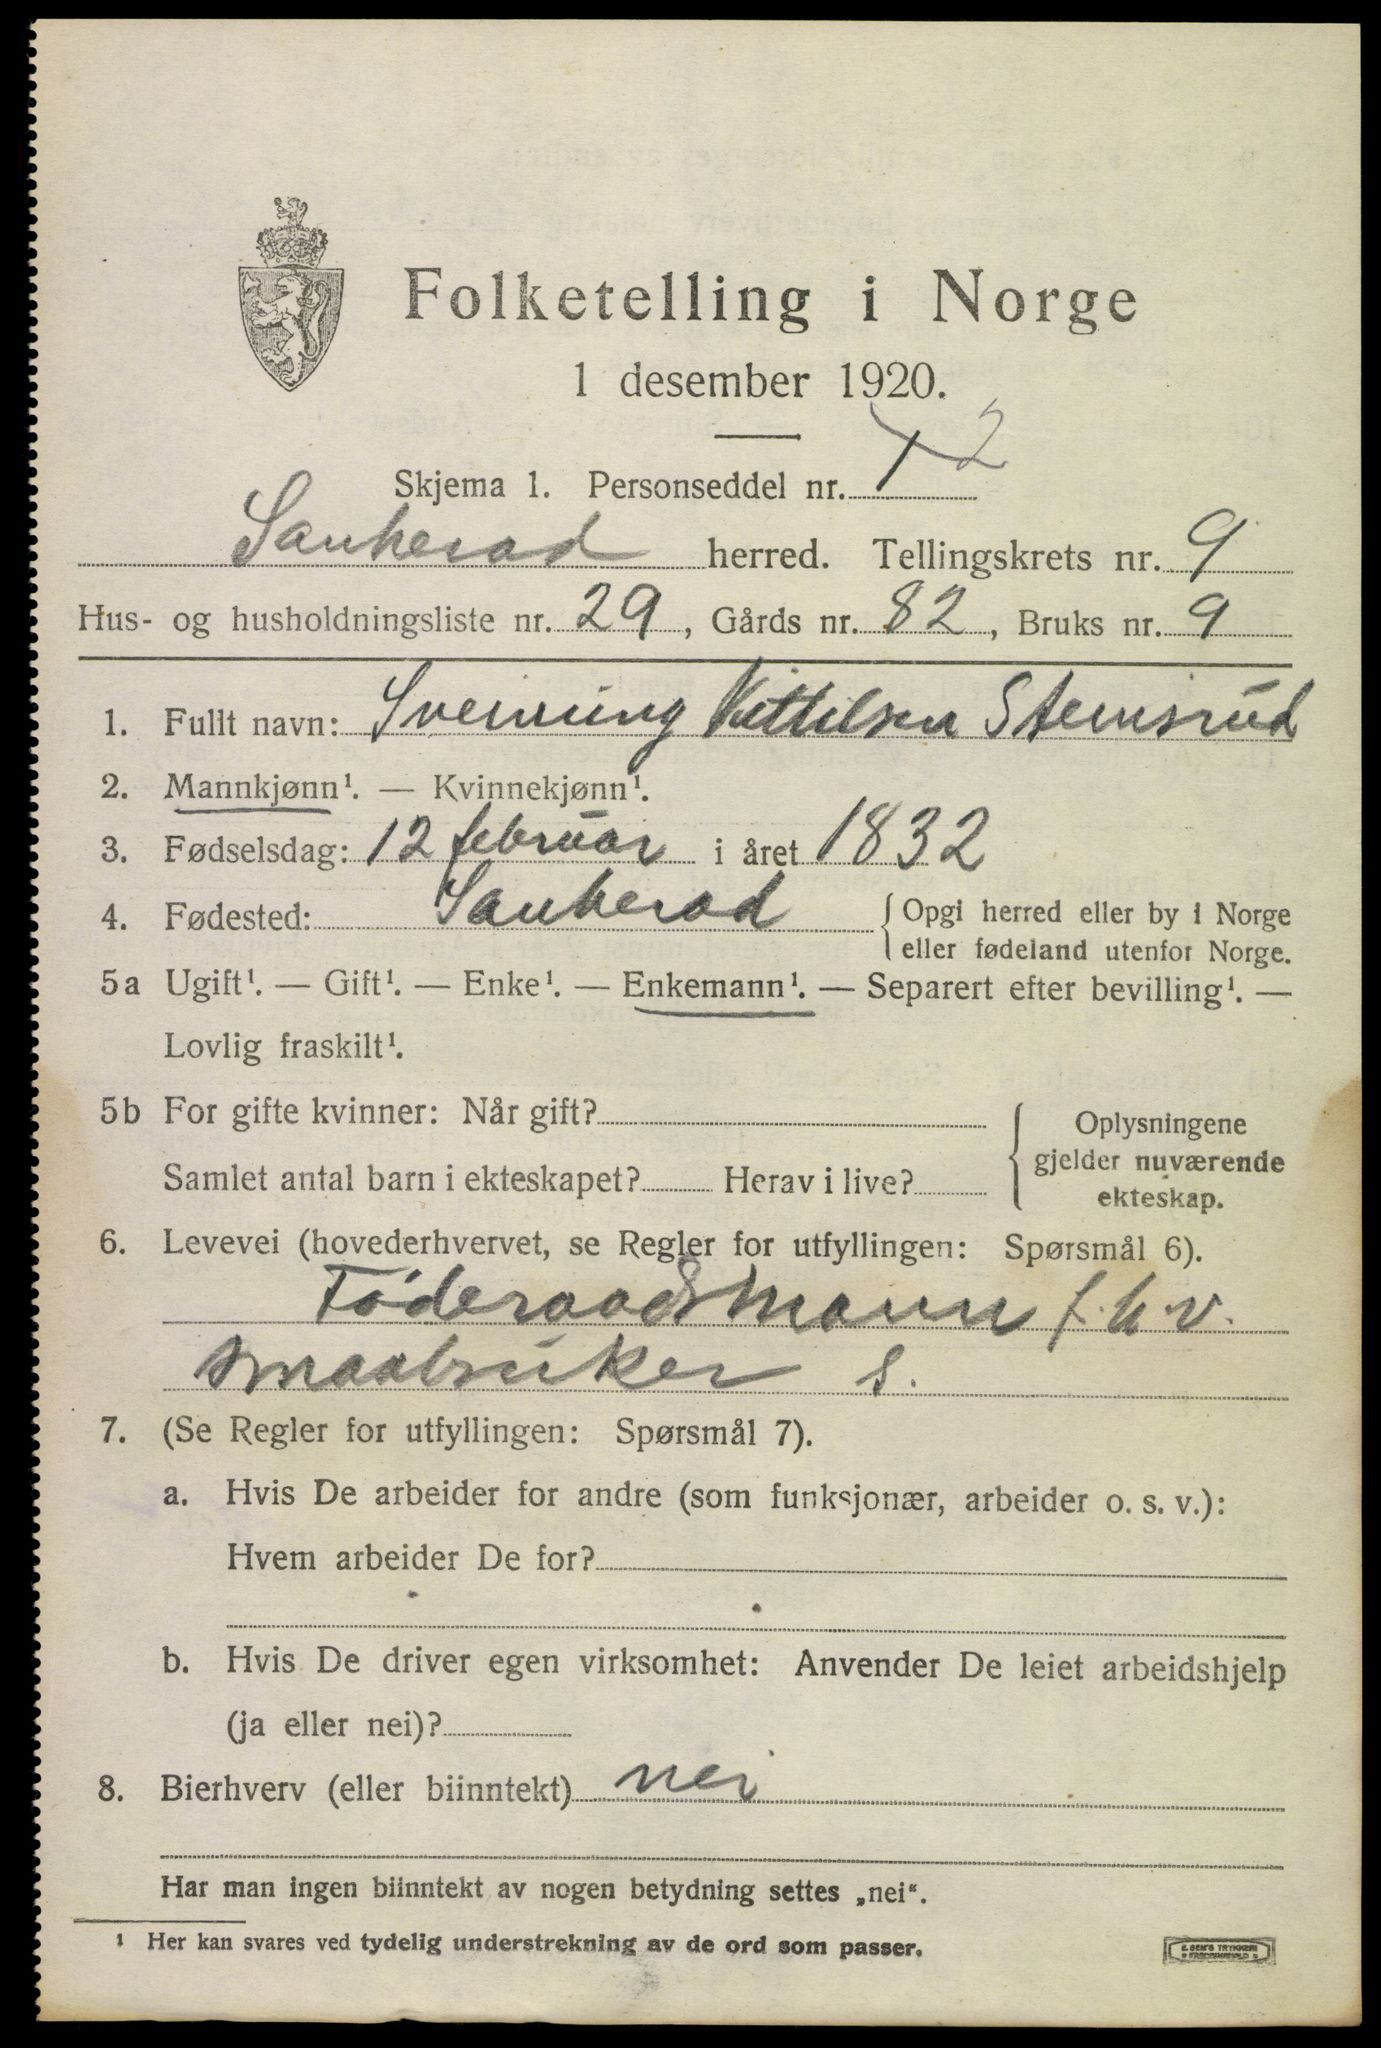 Folketelling i Norge
1 desember 1920.
Skjema 1. Personseddel nr. 1 2
Sauherad herred. Tellingskrets nr. 9
Hus- og husholdningsliste nr. 29, Gårds nr. 82, Bruks nr. 9
1. Fullt navn: Sveinung Kittilsen Stensrud
2. Mannkjønn¹. — Kvinnekjønn¹.
3. Fødselsdag: 12 februar i året 1832
4. Fødested: Sauherad {Opgi herred eller by i Norge
eller fødeland utenfor Norge.
5a Ugift¹. — Gift¹. — Enke¹. — Enkemann¹. — Separert efter bevilling¹. —
Lovlig fraskilt¹.
5b For gifte kvinner: Når gift?
Samlet antal barn i ekteskapet? Herav i live?
{Oplysningene
gjelder nuværende
ekteskap.
6. Levevei (hovederhvervet, se Regler for utfyllingen: Spørsmål 6).
Føderaadsmann f.h.v.
smaabruker s.
7. (Se Regler for utfyllingen: Spørsmål 7).
a. Hvis De arbeider for andre (som funksjonær, arbeider o. s. v.):
Hvem arbeider De for?
b. Hvis De driver egen virksomhet: Anvender De leiet arbeidshjelp
(ja eller nei)?
8. Bierhverv (eller biinntekt) nei
Har man ingen biinntekt av nogen betydning settes „nei“.
¹ Her kan svares ved tydelig understrekning av de ord som passer.